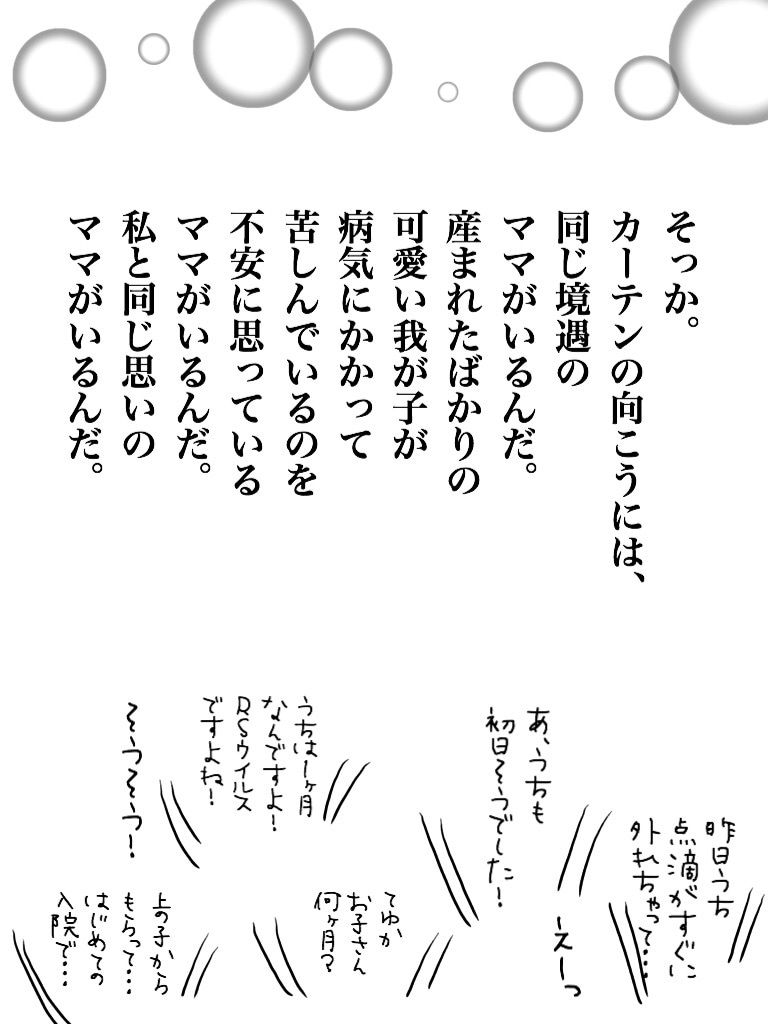 そっか。
カーテンの向こうには、
同じ境遇の
ママがいるんだ。
産まれたばかりの
可愛い我が子が
病気にかかって
苦しんでいるのを
不安に思っている
ママがいるんだ。
私と同じ思いの
ママがいるんだ。
昨日うち
点滴がすぐに
外れちゃって…
えーっ
あ、うちも
初日そうでした!
てゆか
お子さん
何ヶ月?
うちは1ヶ月
なんですよ!
RSウイルス
ですよね!
そうそう!
上の子から
もらって…
はじめての
入院で…